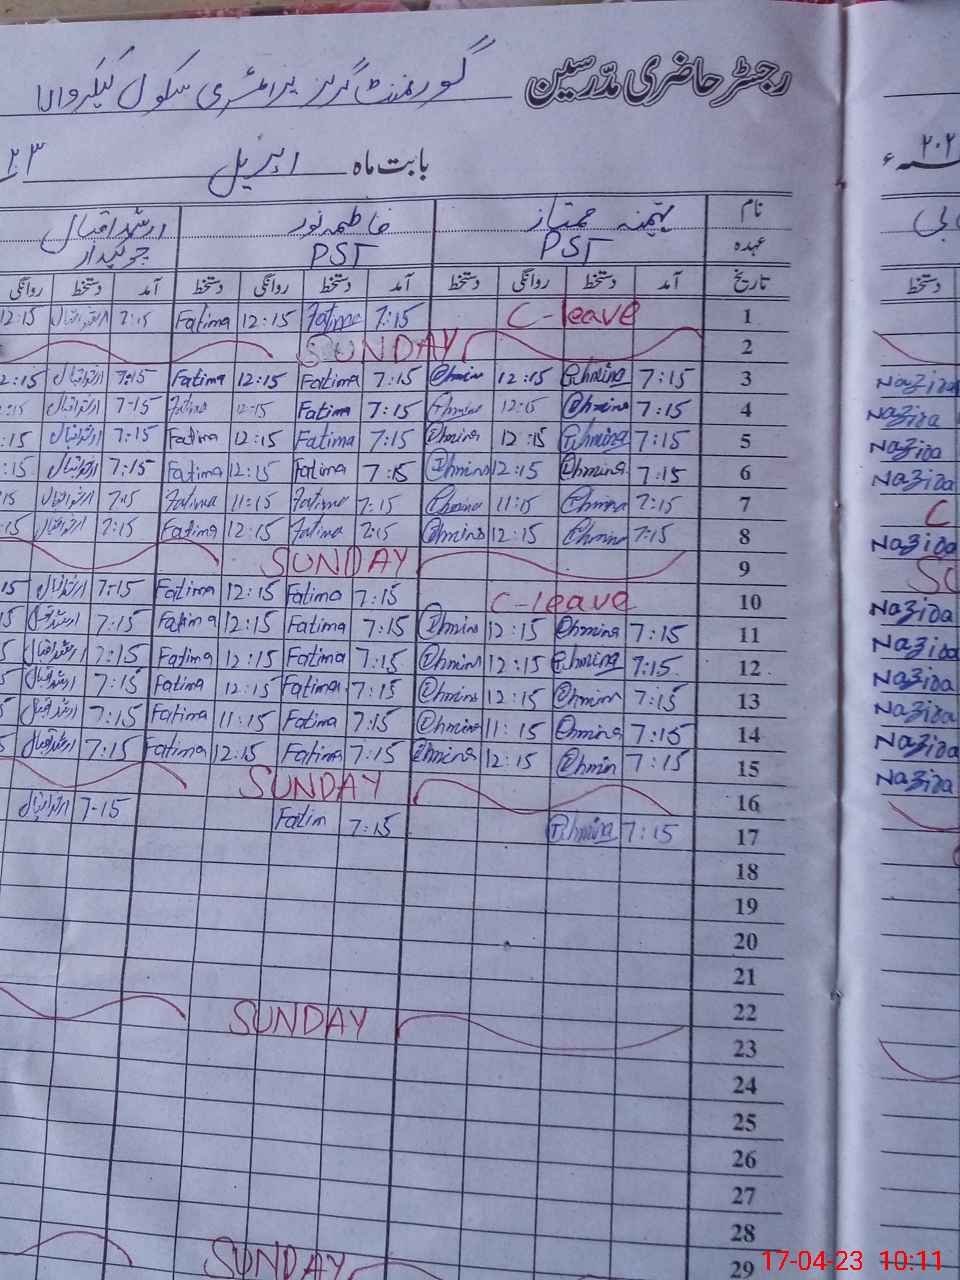 رجسٹر حاضری مدرسین گورنمنٹ گرلز پرائمری سکول
بابت ماہ اپریل ۲۳
۲۰۲
نام تہمینہ ممتاز فاطمہ نور ارشد اقبال
عہدہ PST PST چوکیدار
تاریخ آمد دستخط روانگی دستخط آمد دستخط روانگی دستخط آمد دستخط روانگی دستخط
1 C-leave 7:15 Fatima 12:15 Fatima 7:15 ارشد اقبال 12:15
2 SUNDAY
3 7:15 Tehmina 12:15 Tehmina 7:15 Fatima 12:15 Fatima 7:15 ارشد اقبال 12:15 Nazira
4 7:15 Tehmina 12:15 Tehmina 7:15 Fatima 12:15 Fatima 7-15 ارشد اقبال :15 Nazira
5 7:15 Tehmina 12:15 Tehmina 7:15 Fatima 12:15 Fatima 7:15 ارشد اقبال :15 Nazira
6 7:15 Tehmina 12:15 Tehmina 7:15 Fatima 12:15 Fatima 7:15 ارشد اقبال :15 Nazira
7 7:15 Tehmina 11:15 Tehmina 7:15 Fatima 11:15 Fatima 7:15 ارشد اقبال 15 C
8 7:15 Tehmina 12:15 Tehmina 7:15 Fatima 12:15 Fatima 7:15 ارشد اقبال :15 Nazira
9 SUNDAY SU
10 C-leave 7:15 Fatima 12:15 Fatima 7-15 ارشد اقبال 15 Nazira
11 7:15 Tehmina 12:15 Tehmina 7:15 Fatima 12:15 Fatima 7:15 ارشد اقبال 5 Nazira
12 7:15 Tehmina 12:15 Tehmina 7:15 Fatima 12:15 Fatima 7:15 ارشد اقبال 5 Nazira
13 7:15 Tehmin 12:15 Tehmina 7:15 Fatima 12:15 Fatima 7:15 ارشد اقبال 5 Nazira
14 7:15 Tehmina 11:15 Tehmina 7:15 Fatima 11:15 Fatima 7:15 ارشد اقبال 5 Nazira
15 7:15 Tehmin 12:15 Tehmina 7:15 Fatima 12:15 Fatima 7:15 ارشد اقبال 5 Nazira
16 SUNDAY
17 7:15 Tehmina 7:15 Fatim 7-15 ارشد اقبال
18
19
20
21
22
23 SUNDAY
24
25
26
27
28
29
SUNDAY
17-04-23 10:11